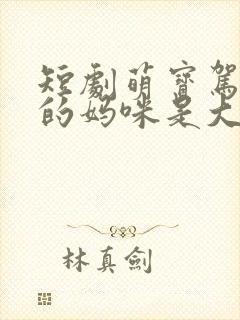 短劇萌寶駕
的媽咪是大
林真劍